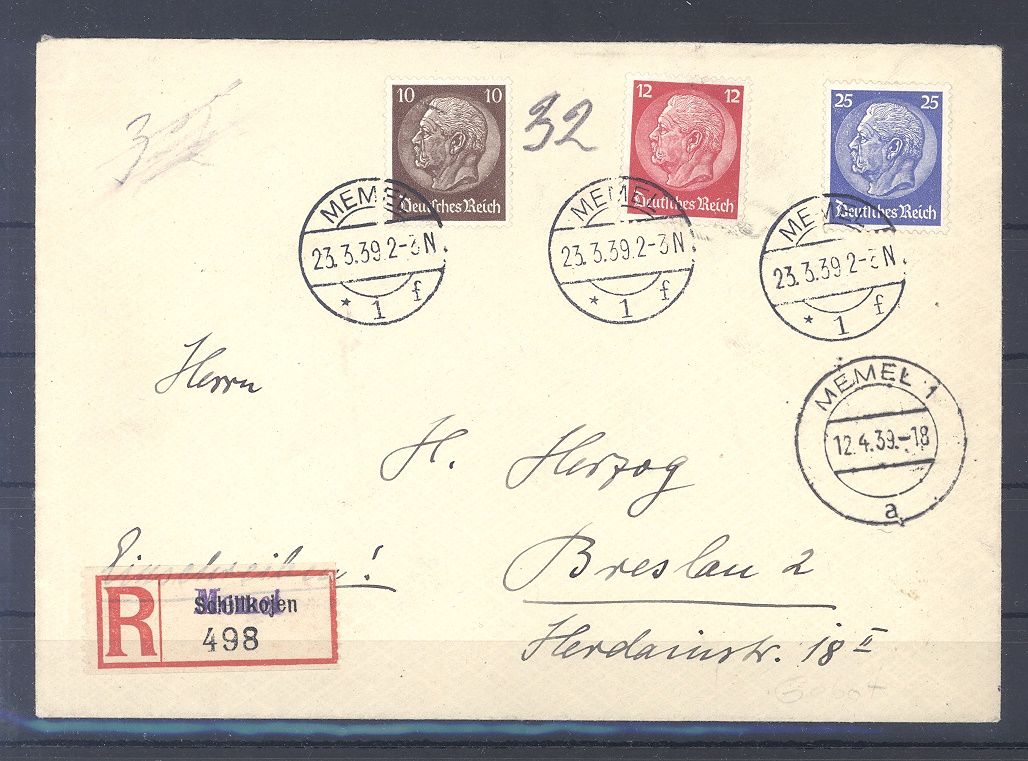 10 10
Deutsches Reich
32
12 12
Deutsches Reich
25 25
Deutsches Reich
MEMEL
23.3.39.2-3N.
* 1 f
MEMEL
23.3.39.2-3N.
* 1 f
MEMEL
23.3.39 2-3N.
* 1 f
MEMEL 1
12.4.39.-18
a
Herrn
H. Herzog
Einschreiben!
Breslau 2
Herdainstr. 18 II
R
Memel
Schillkojen
498